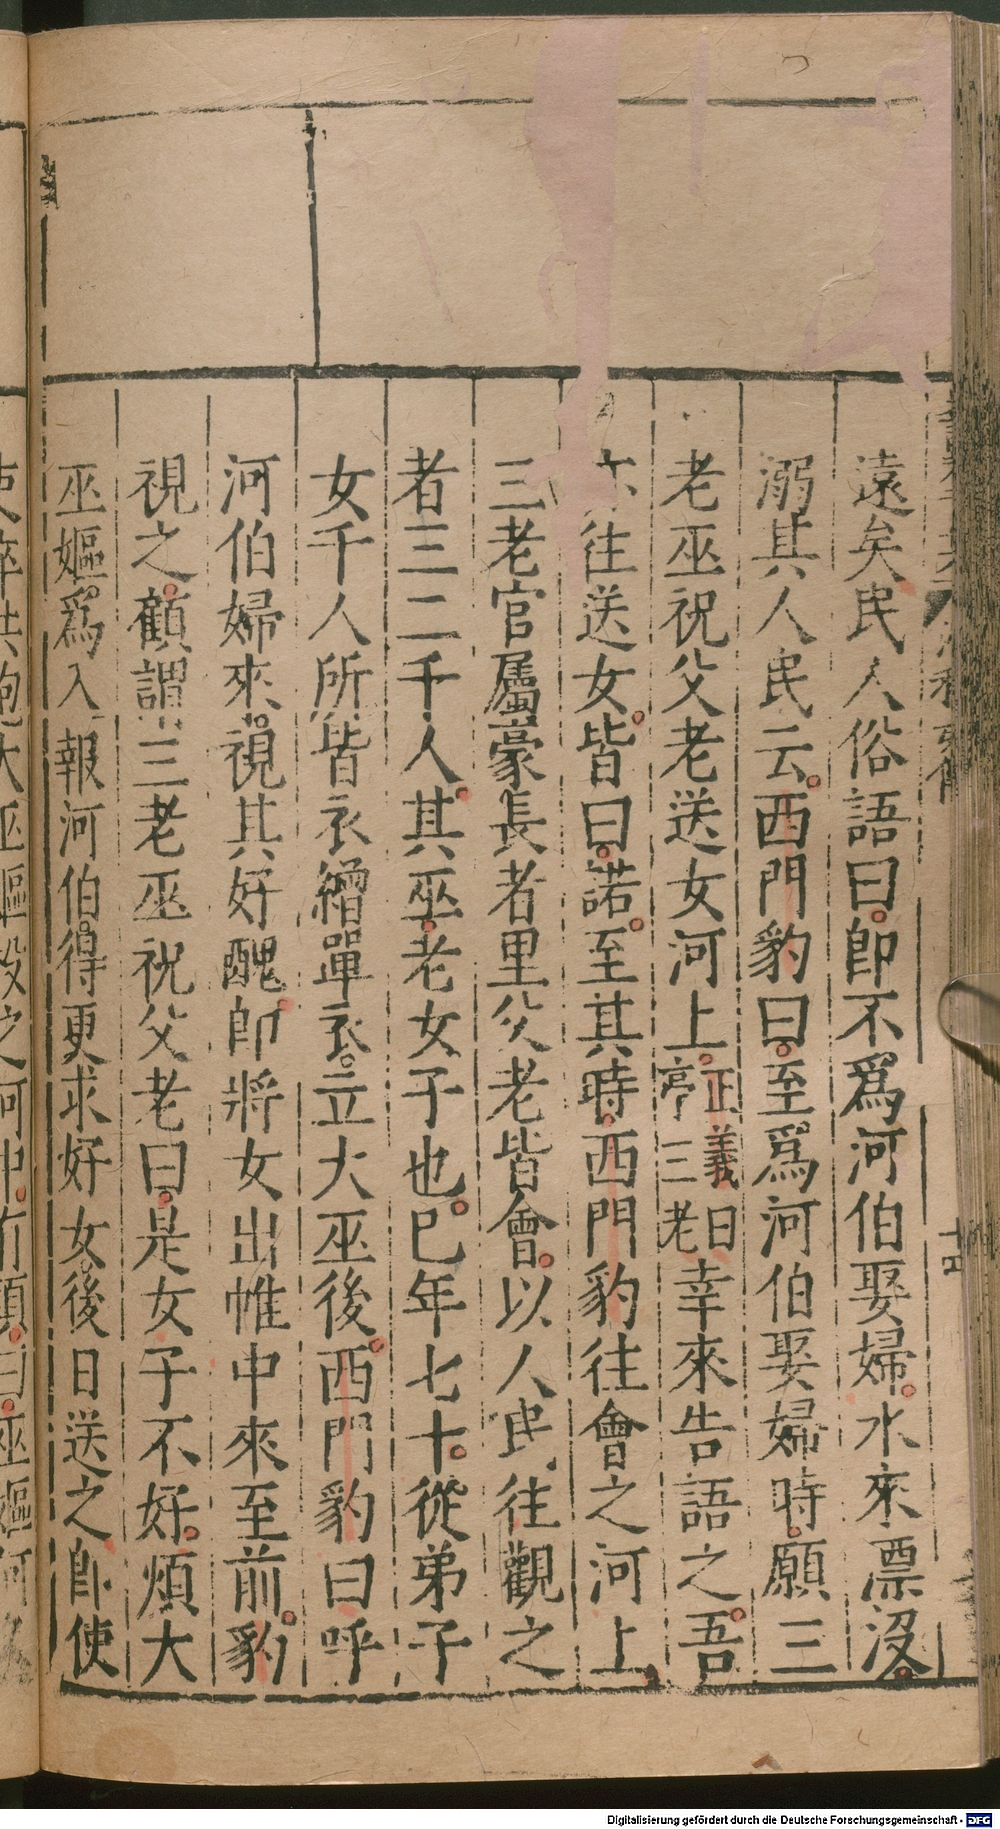 遠矣民人俗語曰卽不爲河伯娶婦水來漂沒
溺其人民云西門豹曰至爲河伯娶婦時願三
老巫祝父老送女河上正義曰亭三老幸來告語之吾
亦往送女皆曰諾至其時西門豹往會之河上
三老官屬豪長者里父老皆會以人民往觀之
者三二千人其巫老女子也已年七十從弟子
女千人所皆衣繒單衣立大巫後西門豹曰呼
河伯婦來視其好醜卽將女出帷中來至前豹
視之顧謂三老巫祝父老曰是女子不好煩大
巫嫗爲入報河伯得更求好女後日送之卽使
Digitalisierung gefördert durch die Deutsche Forschungsgemeinschaft - DFG